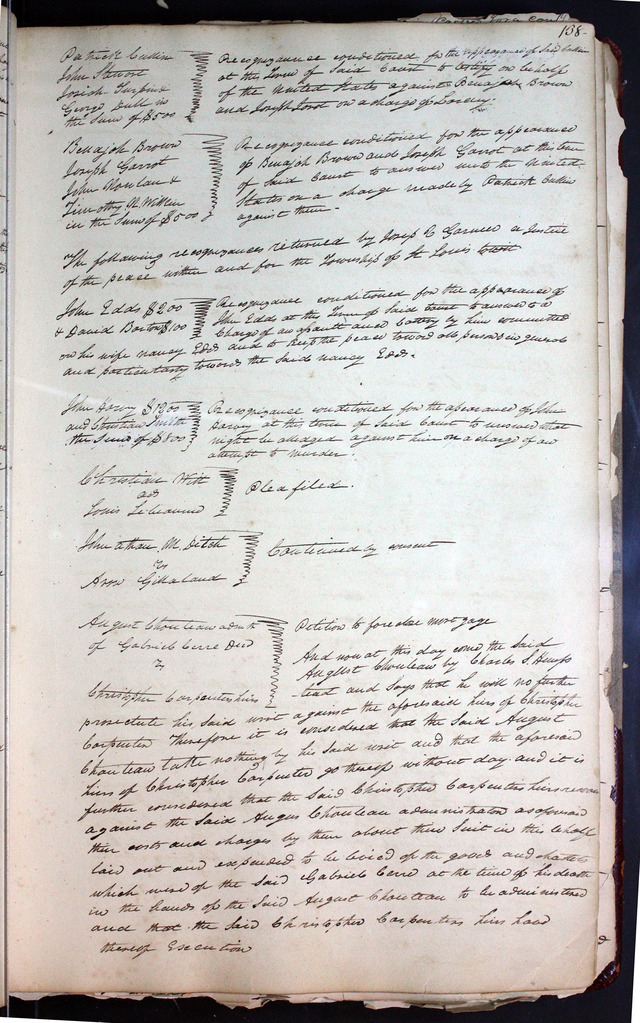 138-
Patrick Cullin
John Stewart
Josiah Turpin &
George Dull in
the Sum of $500
Recognizance conditioned for the appearance of said Cullin
at this Term of Said Court to testify on behalf
of the United States against Benajah Brown
and Joseph Garrot on a charge of Larceny.
Benajah Brown
Joseph Garrot
John Nowlan &
Timothy M. Witten
in the Sum of $500
Recognizance conditioned for the appearance
of Benajah Brown and Joseph Garrot at this term
of Said Court to answer unto the United
States on a charge made by Patrick Cullin
against them -
The following recognizances returned by Joseph C Garnier a Justice
of the peace within and for the Township of St Louis towit
John Edds $200
& David Borton $100
Recognizance conditioned for the appearance of
John Edds at this Term of Said Court to answer to a
Charge of an assault and Battery by him committed
on his wife nancy Edds and to keep the peace toward all persons in general
and particularly towards the Said Nancy Edds.
John Harvy $1200
and Christian Smith
the Sum of $800
Recognizance conditioned for the apearance of John
Harvey at this term of Said Court to answer what
might be alledged against him on a charge of an
attempt to murder.
Christian Witt
ads
Louis Lebeaume
Plea filed.
Johnathan M. Ditch
vs
Aron Gillaland
Continued by consent
August Chouteau admr
of Gabriel Cerre Decd
vs
Christopher Carpenters hirs
Petition to foreclose mortgage
And now at this day come the Said
August Chouteau by Charles S. Hemps
-tead and Says that he will no further
prosecute his Said writ against the aforesaid hirs of Christopher
Carpenter Therefore it is considered that the Said August
Chouteau take nothing by his Said writ and that the aforesaid
hirs of Christopher Carpenter go thereof without day and it is
further considered that the Said Christopher Carpenters hirs recover
against the Said Augus Chouteau administrator as aforesaid
their costs and charges by them about their Suit in this behalf
laid out and expended to be levied of the goods and chattels
which were of the Said Gabriel Cerre at the time of his death
in the hands of the Said August Chouteau to be administered
and that the Said Christopher Carpenters hirs have
thereof Execution